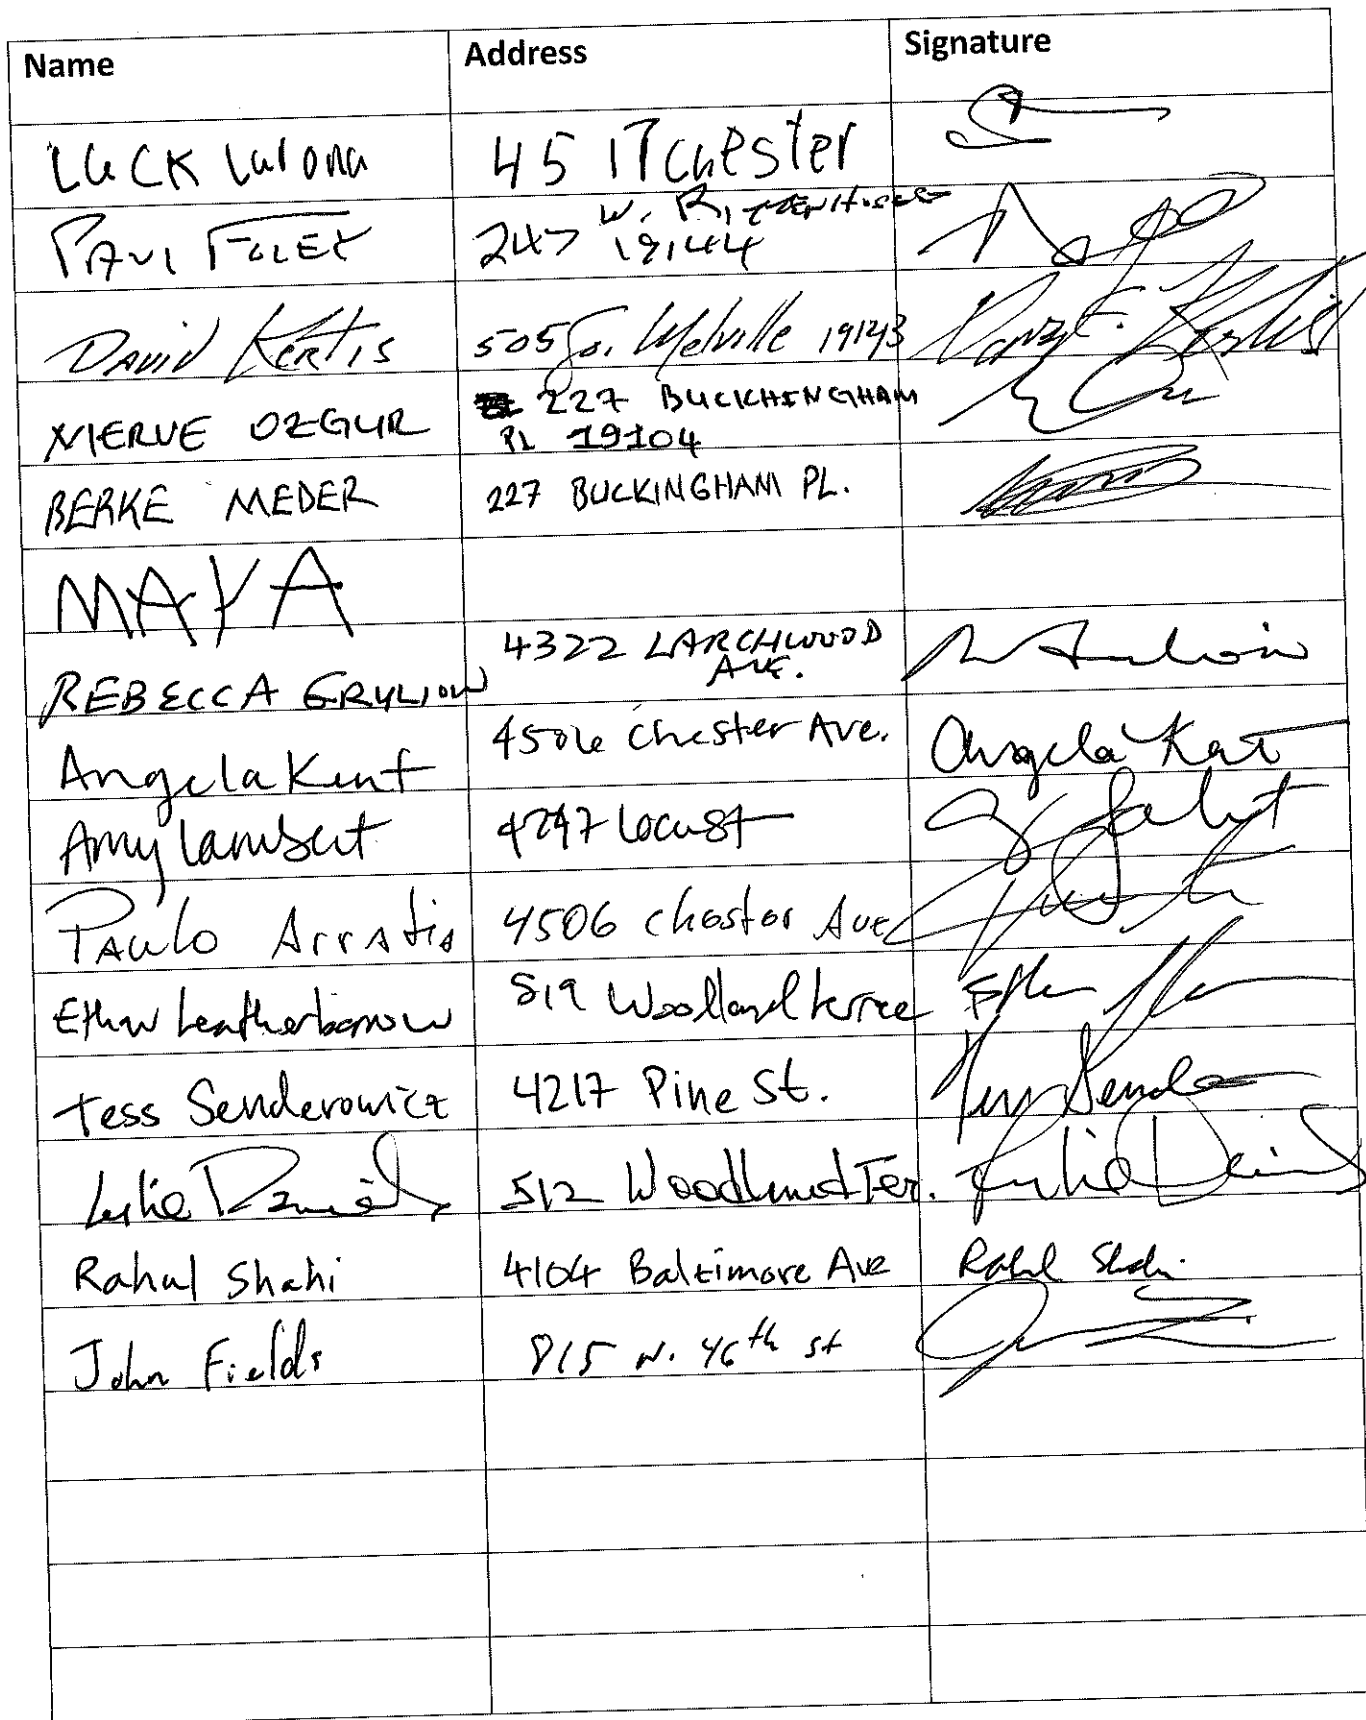 Name Address Signature
45 17 Chester
PAUL FOLEY 247 W. RITTENHOUSE
19144
DAVID Kertis 505 So. Melville 19143
MERVE OZGUR 227 BUCKHINGHAM
PL 19104
BERKE MEDER 227 BUCKINGHAM PL.
MAYA
REBECCA 4322 LARCHWOOD
AVE.
Angela Kent 4506 Chester Ave. Angela Kent
Amy Lambert 4247 Locust
Paulo Arratia 4506 Chester Ave
Ethan Leatherbarrow 519 Woodland terrace
Tess Senderowicz 4217 Pine St. Tess
Leslie Daniels 512 Woodland Ter. Leslie Daniels
Rahul Shahi 4104 Baltimore Ave Rahul Shahi
John Fields 815 N. 46th st